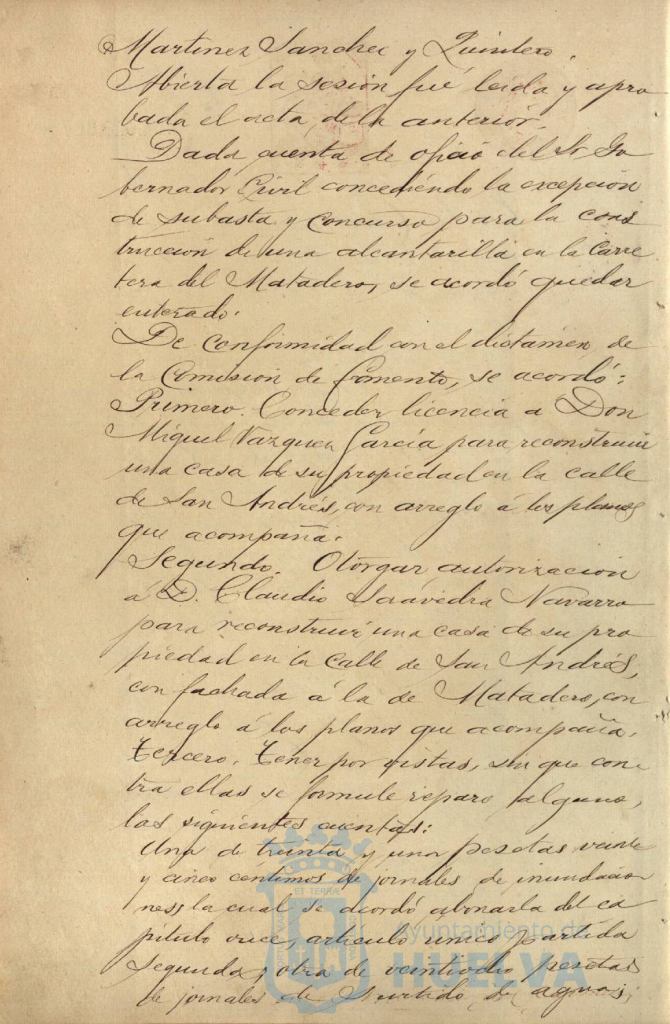 Martinez Sanchez y Quintero.
Abierta la sesion fué leida y apro
bada el acta de la anterior.
Dada cuenta de oficio del Sr. Go
bernador Civil concediendo la excepcion
de subasta y concurso para la cons
truccion de una alcantarilla en la Carre
tera del Matadero, se acordó quedar
enterado.
De conformidad con el dictamen de
la Comision de Fomento, se acordó:
Primero. Conceder licencia á Don
Miguel Vazquez García para reconstruir
una casa de su propiedad en la calle
de San Andrés, con arreglo á los planos
que acompaña.
Segundo. Otorgar autorizacion
á D. Claudio Saavedra Navarro
para reconstruir una casa de su pro
piedad en la Calle de San Andrés,
con fachada á la de Matadero, con
arreglo á los planos que acompaña.
Tercero. Tener por vistas, sin que con
tra ellas se formule reparo alguno,
las siguientes cuentas:
Una de treinta y una pesetas veinte
y cinco centimos de jornales de inundacio
nes la cual se acordó abonarla del ca
pitulo once, articulo unico partida
segunda y otra de veintiocho pesetas
de jornales de Surtido de aguas,
Ayuntamiento de
HUELVA